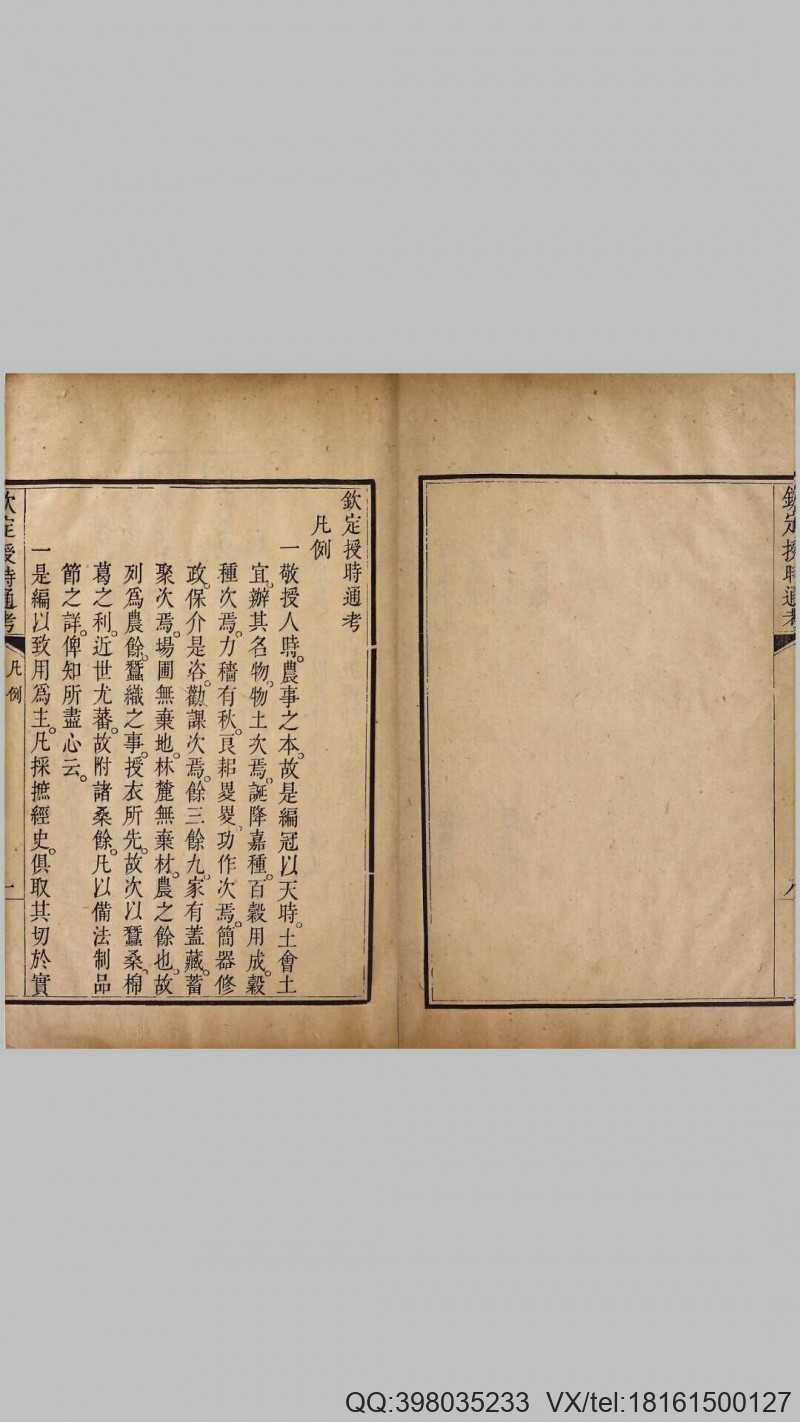 欽定授時通考
欽定授時通考
凡例
一敬授人時。農事之本。故是編冠以天時。土會土
宜。辦其名物。物土次焉。誕降嘉種。百穀用成。穀
種次焉。力穡有秋。良耜畟畟。功作次焉。簡器修
政。保介是咨。勸課次焉。餘三餘九。家有蓋藏。蓄
聚次焉。場圃無棄地。林麓無棄材。農之餘也。故
列爲農餘。蠶織之事。授衣所先。故次以蠶桑。棉
葛之利。近世尤蕃。故附諸桑餘。凡以備法制品
節之詳。俾知所盡心云。
一是編以致用爲主。凡採摭經史。俱取其切於實
欽定授時通考
凡例
一
QQ:398035233 VX/tel:18161500127